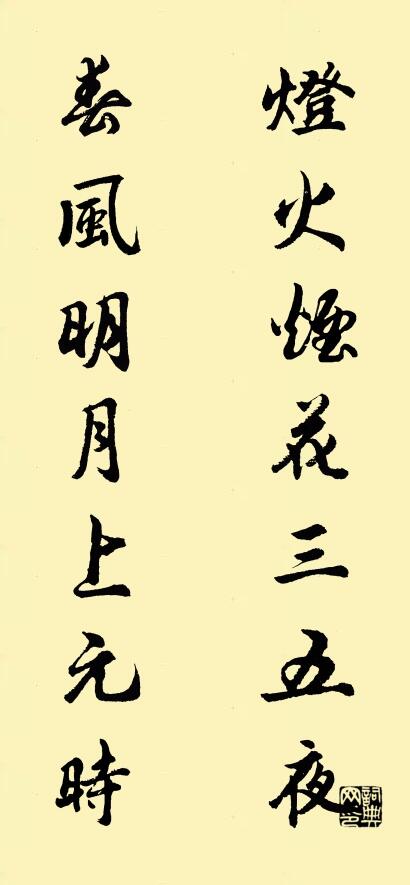 燈火煙花三五夜
春風明月上元時
詞典网